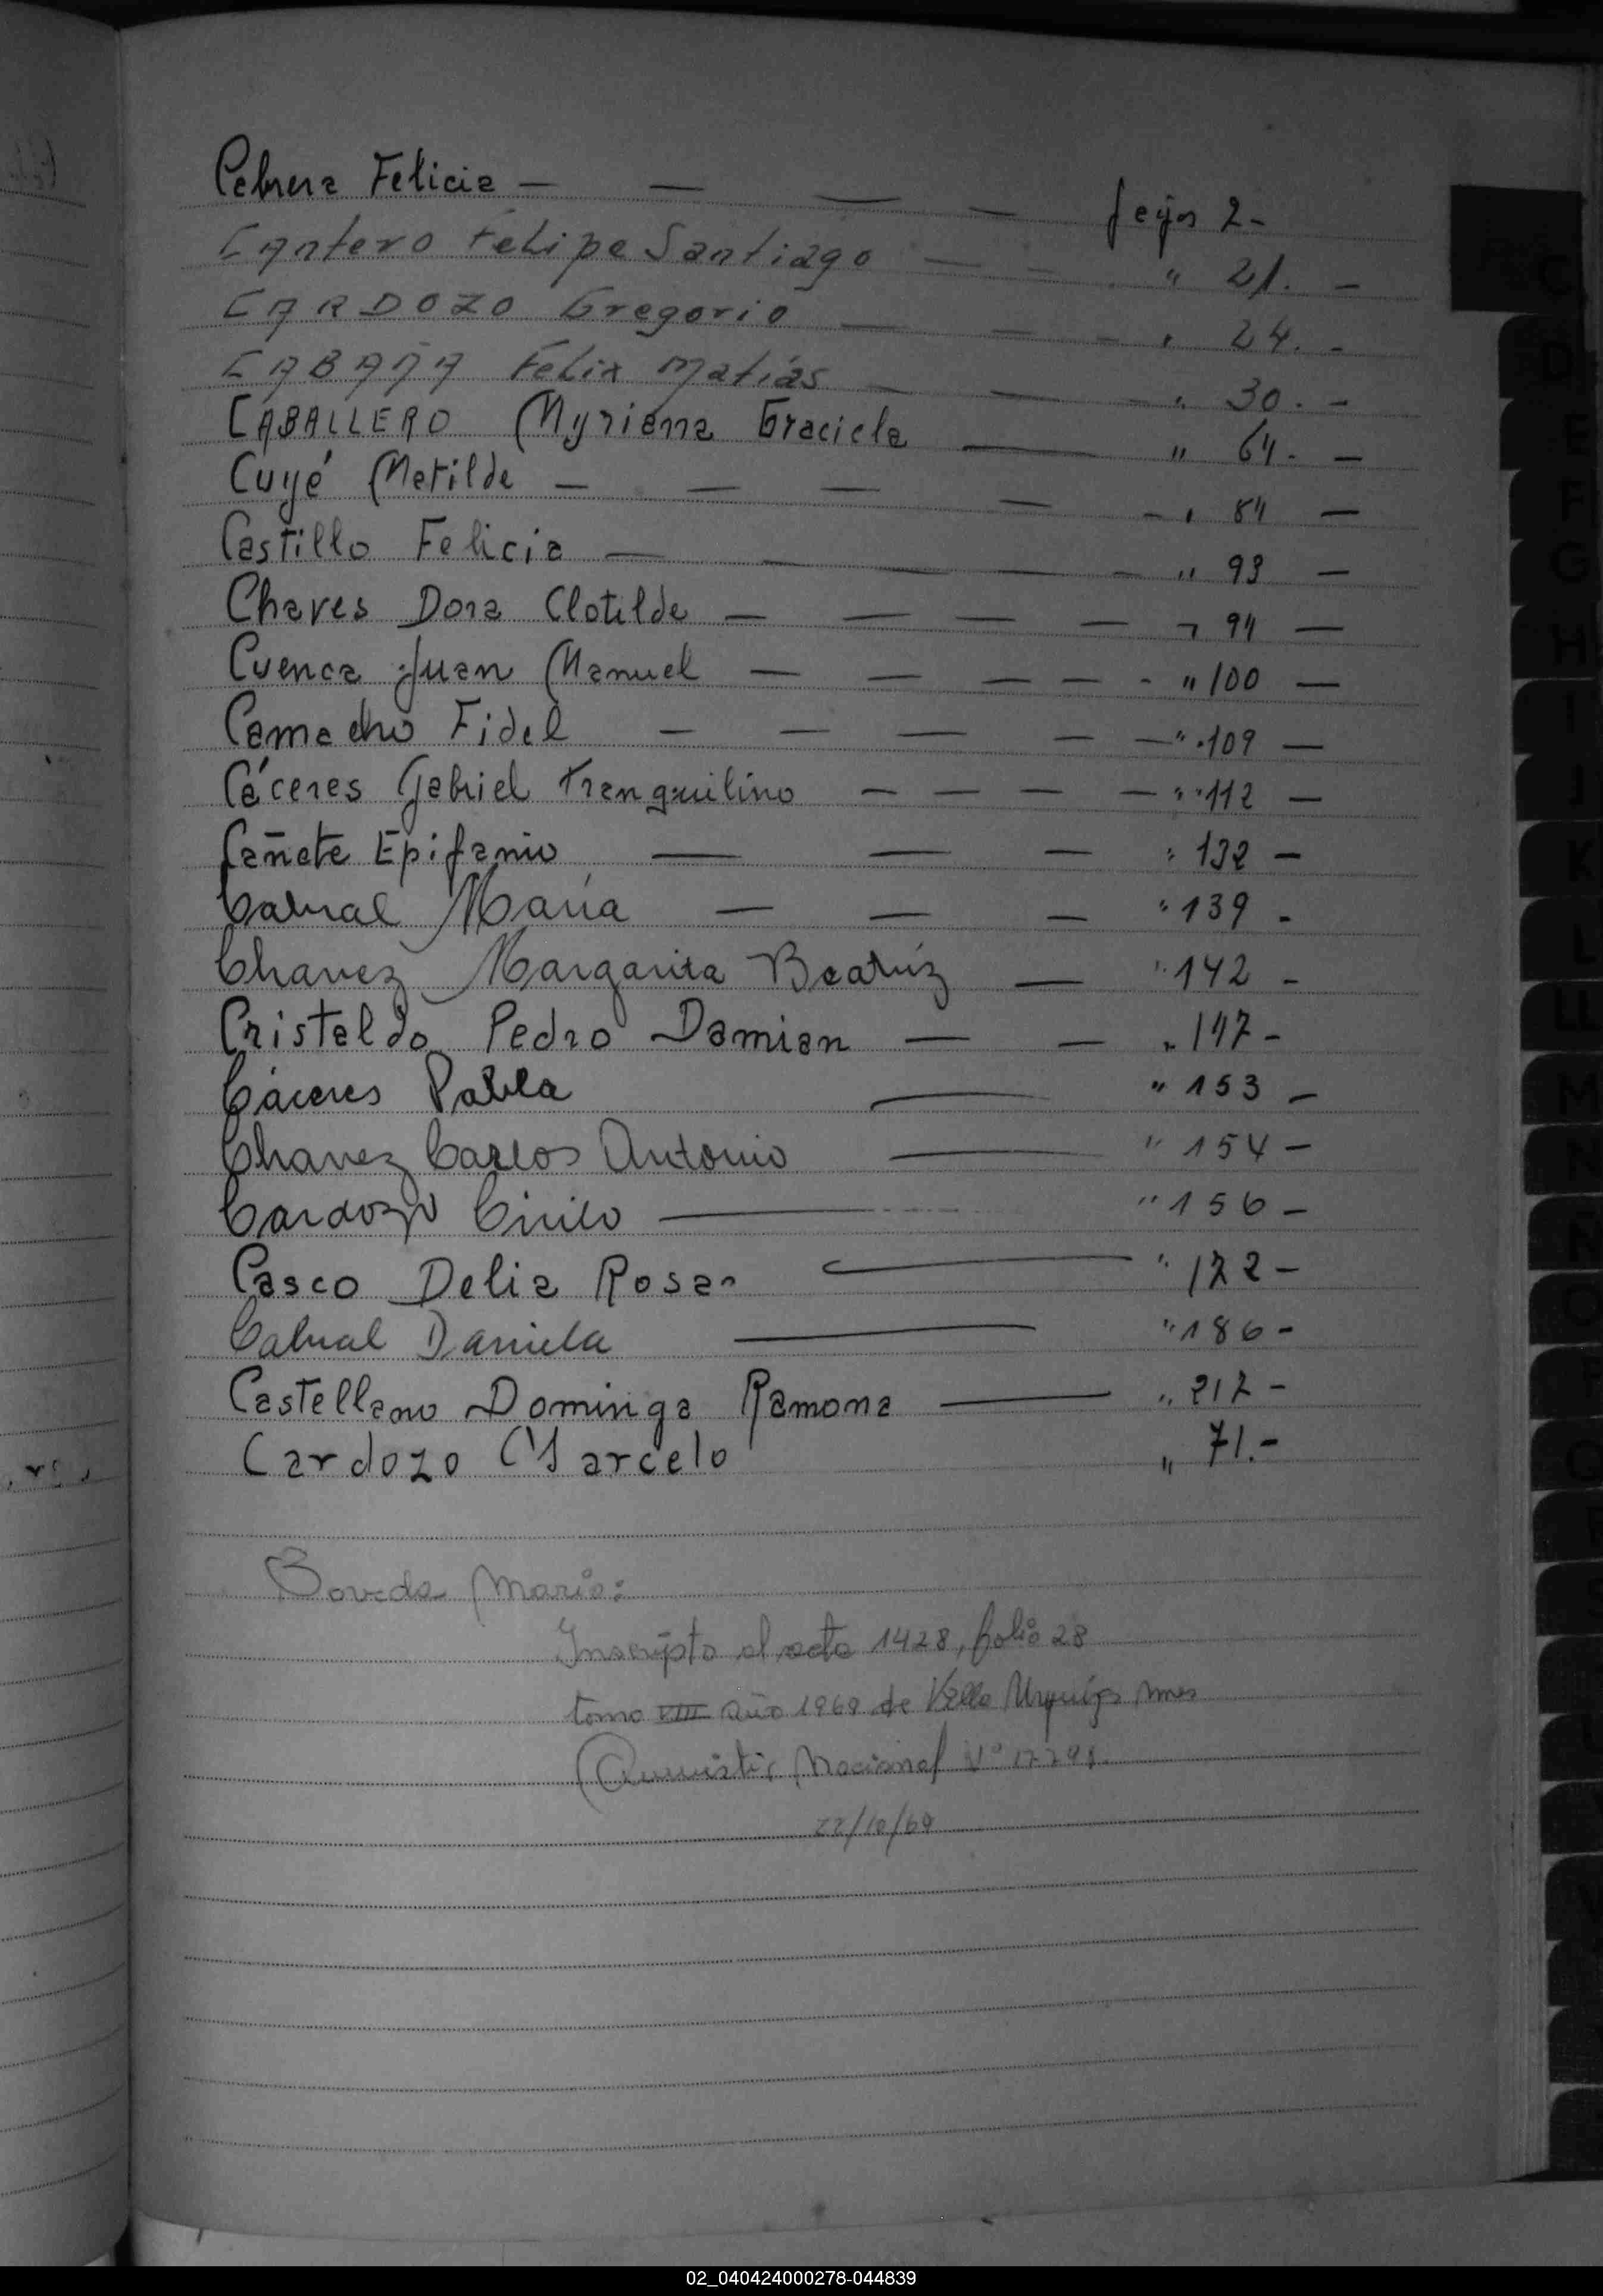 Cabrera Felicia — — — — fojas 2-
CANtero Felipe Santiago — — " 21. —
CARDOZO Gregorio — — — " 24. -
CABAÑA Felix Matías — — — " 30. -
CABALLERO Myriama Graciela — " 64. —
Cuyé Matilde — — — — — " 84 —
Castillo Felicia — — — — " 93 —
Chaves Dora Clotilde — — — — " 94 —
Cuenca Juan Manuel — — — — - " 100 —
Camacho Fidel — — — — — " 109 —
Cáceres Gabriel Tranquilino — — — — " 112 —
Cañete Epifanio — — — " 132 —
Cabral María — — — " 139 -
Chavez Margarita Beatríz — " 142 -
Cristaldo Pedro Damian — — " 147 -
Cáceres Pabla — " 153 —
Chavez Carlos Antonio — " 154 —
Cardozo Cirilo — " 156 —
Casco Delia Rosa — " 172 —
Cabral Daniela — " 186 -
Castellano Dominga Ramona — " 217 -
Cardozo Marcelo " 71.-
Boveda Mario:
Inscripto al acta 1428, folio 28
tomo VIII año 1969 de Villa Urquiza
Nacional Nº
22/10/69
C
D
E
F
G
H
I
J
K
L
LL
M
N
Ñ
O
P
Q
R
S
02_040424000278-044839